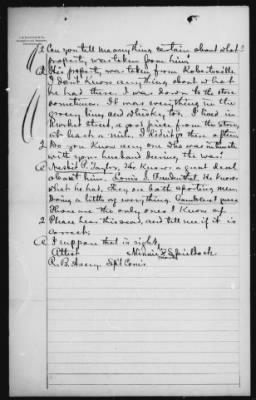 Q Can you tell me anything certain about what
property was taken from him?
A His property was taken from Robertsville.
I don't know anything about what
he had there. I was down to the store
sometimes. It was everything in the
grocery line and whiskey too. I lived in
Market street, a good piece from the store,
at least a mile. I didn't go there often.
Q Do you know any one who was intimate
with your husband during the war?
A Taylor. He knows a great deal
about him. Louis S. Freudenthal. He knows
what he had. They are both sporting men.
Doing a little of everything. Gamblers I guess
Those are the only ones I know of
Q Please hear this read, and tell me if it is
correct.
A I suppose that is right.
Attest Minnie Spielbock
R. B. Avery Sp'l Com'r